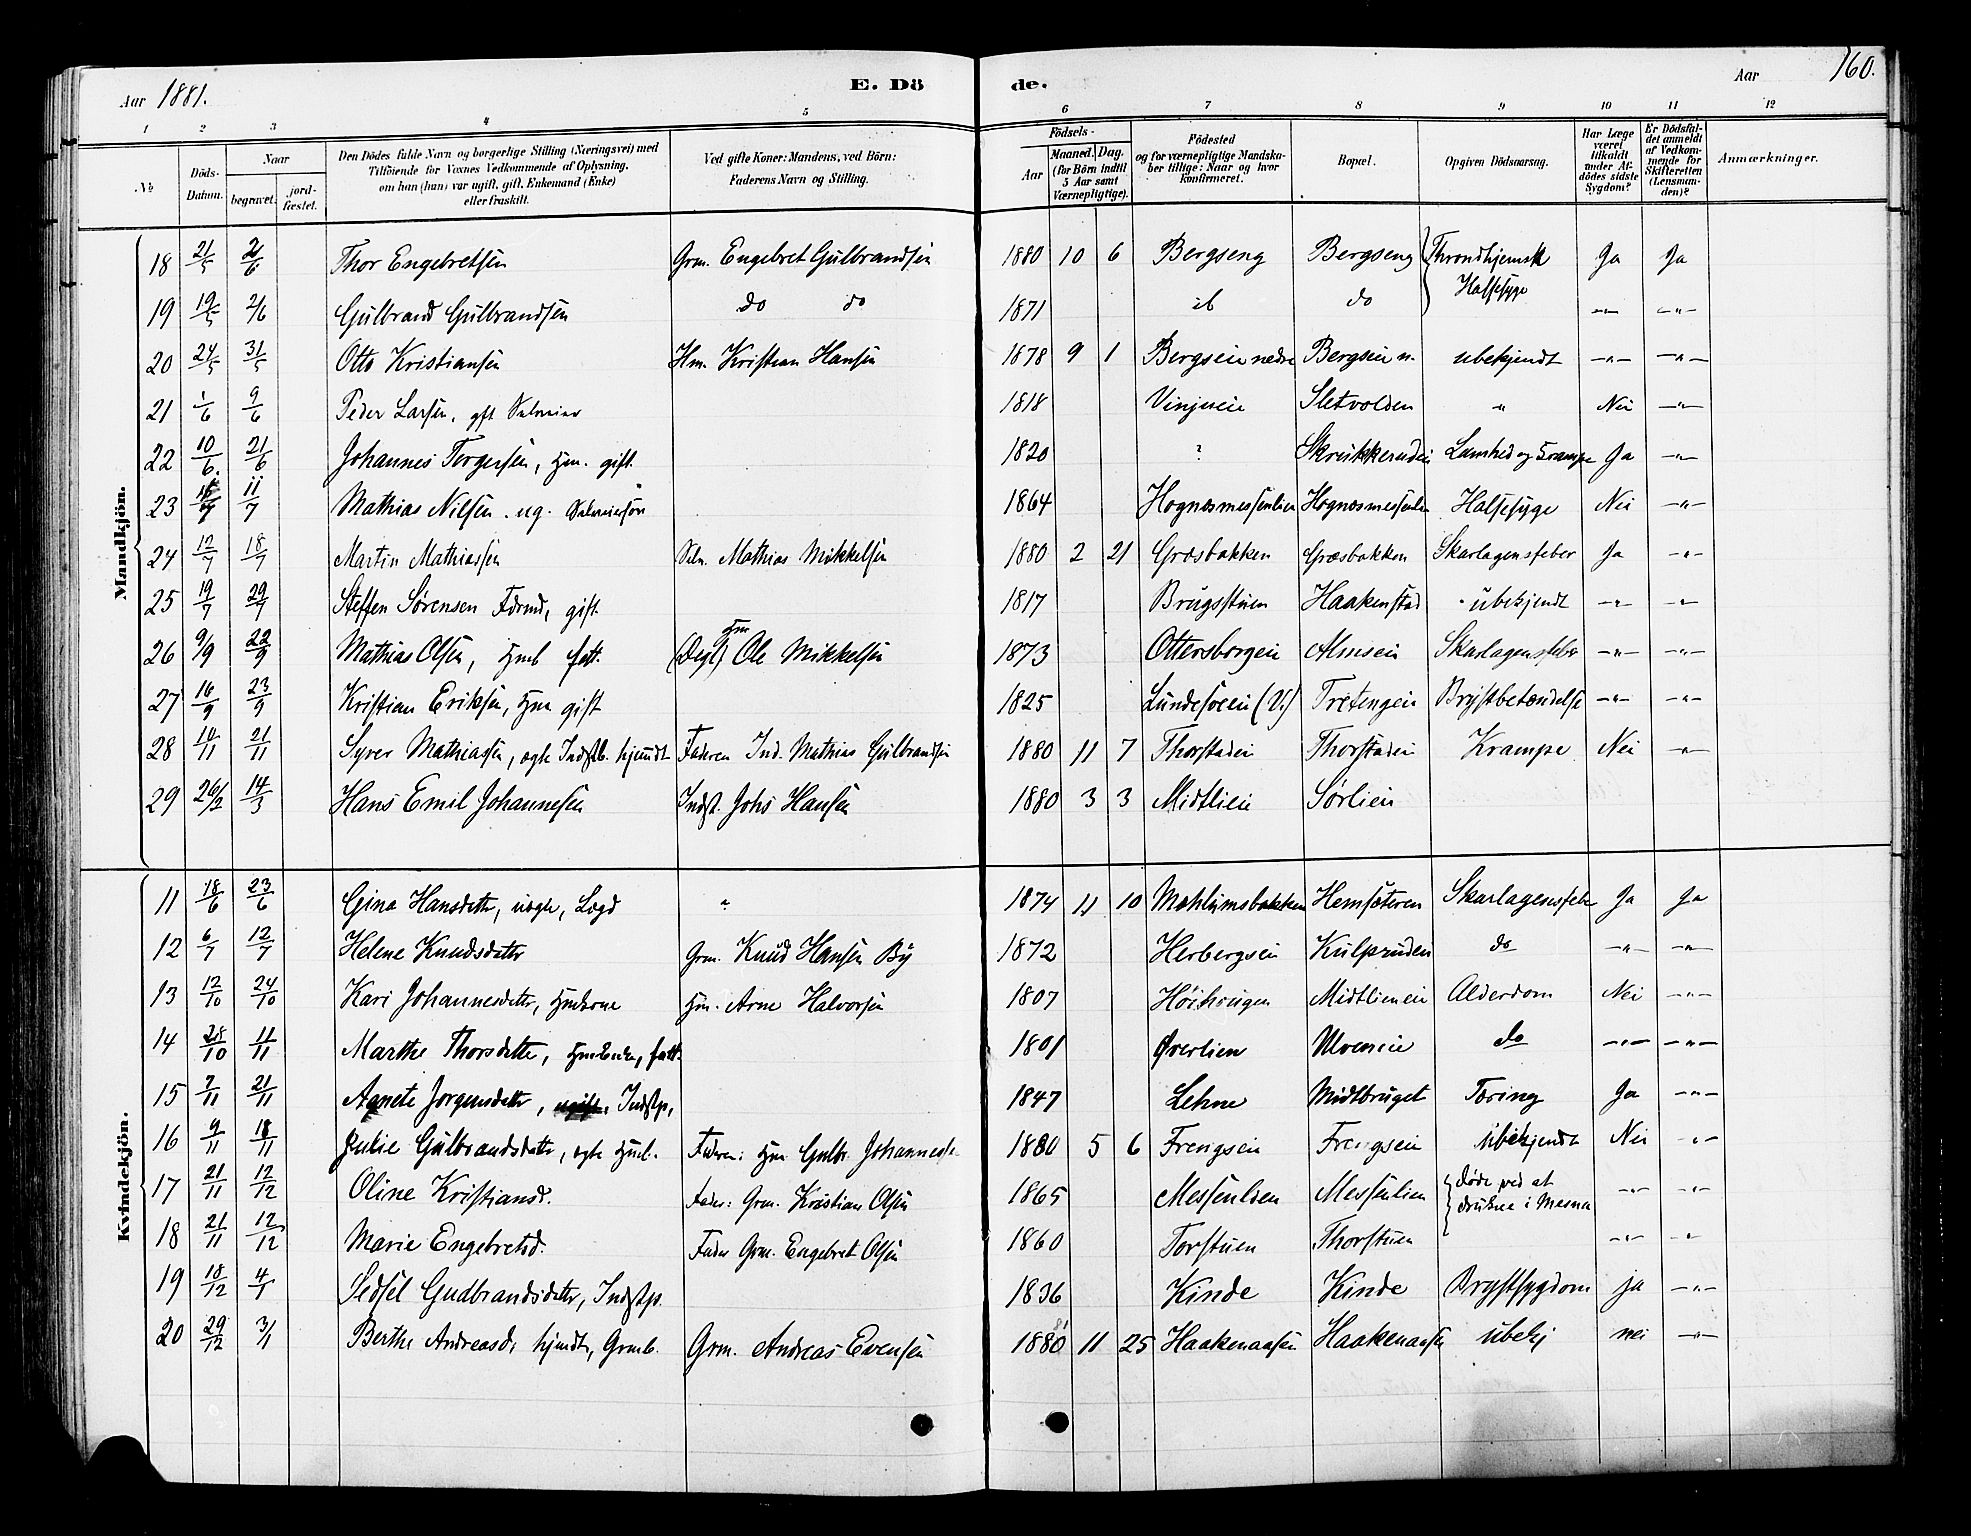 Aar 1881. E. Dö de. Aar 160.
1 2 3 4 5 6 7 8 9 10 11 12
No
Döds-Datum.
Naar
begravet.
jord-fæstet.
Den Dödes fulde Navn og borgerlige Stilling (Næringsvei) med
Tilföiende for Voxnes Vedkommende af Oplysning,
om han (hun) var ugift, gift, Enkemand (Enke)
eller fraskilt.
Ved gifte Koner: Mandens, ved Börn:
Faderens Navn og Stilling.
Födsels-
Aar
Maaned. Dag.
(for Börn indtil
5 Aar samt
Værnepligtige).
Födested
og for værnepligtige Mandska-
ber tillige: Naar og hvor
konfirmeret.
Bopæl.
Opgiven Dödsaarsag.
Har Læge
været
tilkaldt
under Af-
dödes sidste
Sygdom?
Er Dödsfal-
det anmeldt
af Vedkom-
mende for
Skifteretten
(Lensman-
den)?
Anmærkninger.
Mandkjön.
18 21/5 2/6 Thor Engebretsen Grm. Engebret Gulbrandsen 1880 10 6 Bergseng Bergseng Throndhjemsk Halssyge Ja Ja
19 19/5 2/6 Gulbrand Gulbrandsen do do 1871 ib do -"- -"-
20 24/5 31/5 Otto Kristiansen Hm. Kristian Hansen 1878 9 1 Bergseie nedre Bergseie n. ubekjendt -"- -"-
21 1/6 9/6 Peder Larsen, gft Selveier 1818 Vinjueie Sletvolden " Nei -"-
22 10/6. 21/6 Johannes Torgersen, Hm. gift. 1820 ? Skrukkerudei Lamhed og Krampe Ja -"-
23 11/7 Mathias Nilsen. ug. Selveiersøn 1864 Hognæsmessenlien Hognæsmessenlien Halssyge Nei -"-
24 12/7 18/7 Martin Mathiassen Selv. Mathias Mikkelsen 1880 2 21 Græsbakken Græsbakken Skarlagensfeber Ja -"-
25 19/7 29/7 Steffen Sørensen Fdrmd, gift 1817 Brugsstuen Haakenstad ubekjendt -"- -"-
26 9/9 22/9 Mathias Olsen, Hmb fatt. (Degl) Hm Ole Mikkelsen 1873 Ottersborgeie Almseie Skarlagensfeber -"- -"-
27 16/9 23/9 Kristian Eriksen, Hm gift 1825 Lundesveen (V.) Tretengeie Brystbetændelse -"- -"-
28 10/11 21/11 Syver Mathiassen, ægte Indstb. hjemdt Faderen Ind. Mathias Gulbrandsen 1880 11 7 Thorstadei Thorstadei Krampe Nei -"-
29 26/2 14/3 Hans Emil Johannesen Indst. Johs Hansen 1880 3 3 Midtlieie Sørlien
Kvindekjön.
11 18/6 23/6 Gina Hansdatter, uægte, Lægd " 1874 11 10 Mæhlumsbakken Hemsæteren Skarlagensfeber Ja Ja
12 6/7 12/7 Helene Knudsdatter Grm. Knud Hansen By 1872 Herbergseie Kulpruden do -"- -"-
13 12/10 24/10 Kari Johannesdatter, Hmkone Hm. Arne Halvorsen 1807 Høihaugen Midtlieneie Alderdom Nei -"-
14 28/10 11/11 Marthe Thorsdatter, Hm Enke, fatt. 1801 Øverlien Ulveneie do -"- -"-
15 7/11 21/11 Agnete Jørgensdatter, Indstp, 1847 Lehne Midtbruget Tæring Ja -"-
16 9/11 18/11 Julie Gulbrandsdatter, ægte Hmb. Faderen: Hm Gulbr. Johannesse 1880 5 6 Frengseie Frengseie Ubekjendt Nei -"-
17 21/11 12/12 Oline Kristiansd. Fader: Grm. Kristian Olsen 1865 Messenlien Messenlien døde ved at drukne i Mesna -"- -"-
18 21/11 12/12 Marie Engebretsd. Fader Grm. Engebret Olsen 1860 Torstuen Thorstuen -"- -"-
19 18/12 4/1 Sedsel Gudbrandsdatter, Indstp. 1836 Kinde Kinde Brystsygdom ja -"-
20 29/12 3/1 Berthe Andreasd. hjemdt, Grmb. Grm. Andreas Evensen 1880 81 11 25 Haakenaasen Haakenaasen ubekj nei -"-